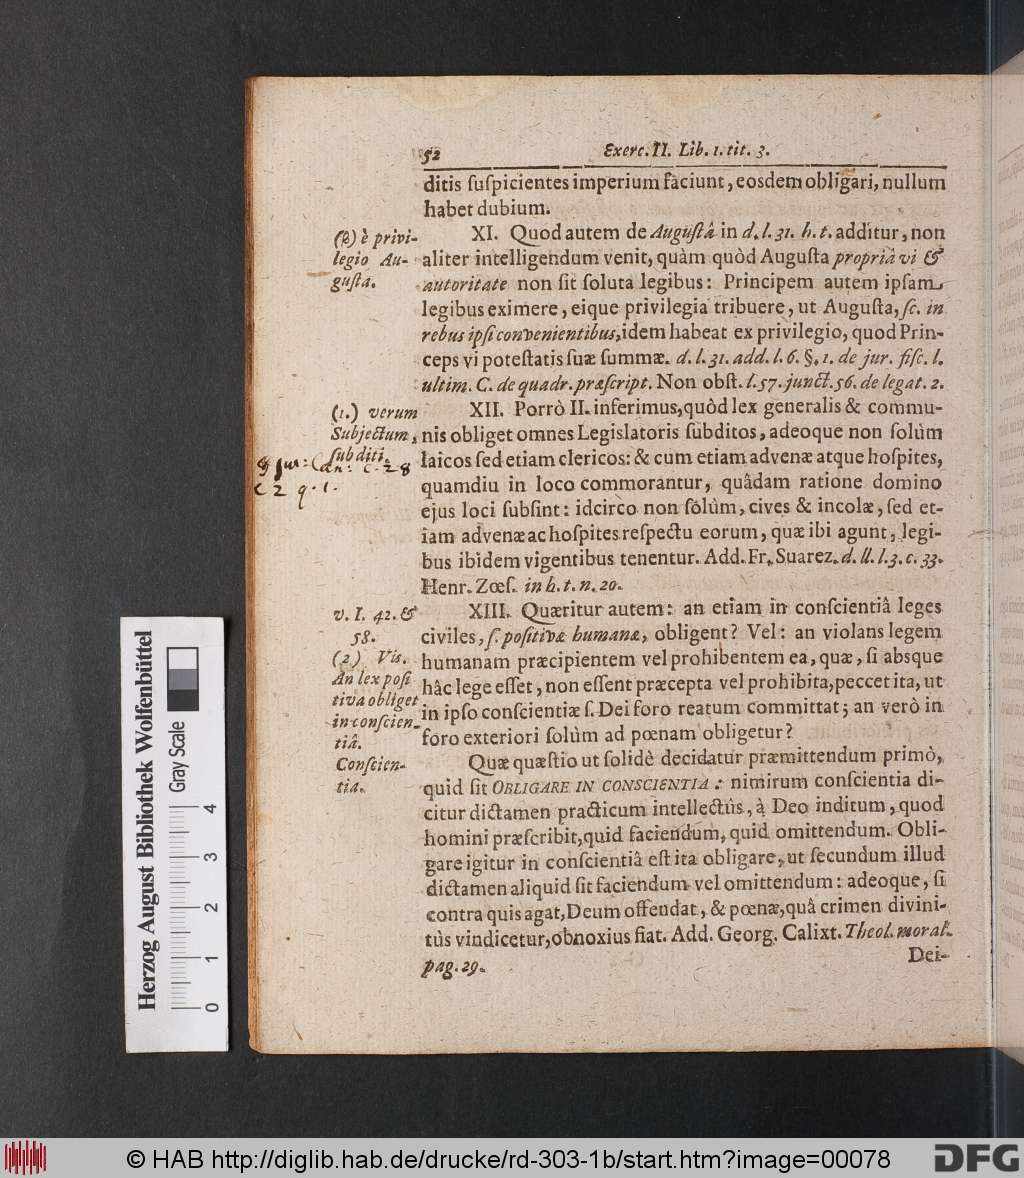 52 Exerc. II. Lib. 1. tit. 3.
ditis ſuſpicientes imperium faciunt, eosdem obligari, nullum
habet dubium.
XI. Quod autem de Auguſtâ in d. l. 31. h. t. additur, non
aliter intelligendum venit, quàm quòd Auguſta propriâ vi &
autoritate non ſit ſoluta legibus: Principem autem ipſam
legibus eximere, eique privilegia tribuere, ut Auguſta, ſc. in
rebus ipſi convenientibus, idem habeat ex privilegio, quod Prin-
ceps vi poteſtatis ſuæ ſummæ. d. l. 31. add. l. 6. §. 1. de jur. fiſc. l.
ultim. C. de quadr. præſcript. Non obſt. l. 57. junct. 56. de legat. 2.
XII. Porrò II. inferimus, quòd lex generalis & commu-
nis obliget omnes Legislatoris ſubditos, adeoque non ſolùm
laicos ſed etiam clericos: & cum etiam advenæ atque hoſpites,
quamdiu in loco commorantur, quâdam ratione domino
ejus loci ſubſint: idcirco non ſolùm, cives & incolæ, ſed et-
iam advenæ ac hoſpites reſpectu eorum, quæ ibi agunt, legi-
bus ibidem vigentibus tenentur. Add. Fr. Suarez. d. ll. l. 3. c. 33.
Henr. Zœſ. in h. t. n. 20.
XIII. Quæritur autem: an etiam in conſcientiâ leges
civiles, ſ. poſitivæ humanæ, obligent? Vel: an violans legem
humanam præcipientem vel prohibentem ea, quæ, ſi absque
hâc lege eſſet, non eſſent præcepta vel prohibita, peccet ita, ut
in ipſo conſcientiæ ſ. Dei foro reatum committat; an verò in
foro exteriori ſolùm ad pœnam obligetur?
Quæ quæſtio ut ſolidè decidatur præmittendum primò,
quid ſit OBLIGARE IN CONSCIENTIA: nimirum conſcientia di-
citur dictamen practicum intellectùs, à Deo inditum, quod
homini præſcribit, quid faciendum, quid omittendum. Obli-
gare igitur in conſcientiâ eſt ita obligare, ut ſecundum illud
dictamen aliquid ſit faciendum vel omittendum: adeoque, ſi
contra quis agat, Deum offendat, & pœnæ, quâ crimen divini-
tùs vindicetur, obnoxius fiat. Add. Georg. Calixt. Theol. moral.
pag. 29.
Dei-
è privi-
legio Au-
guſta.
(1.) verum
Subjectum,
ſubditi.
c. 28
C 2 q. 1.
v. I. 42. &
58.
(2) Vis.
An lex poſi
tiva obliget
in conſcien-
tiâ.
Conſcien-
tia.
Herzog August Bibliothek Wolfenbüttel
Gray Scale
0 1 2 3 4
© HAB http://diglib.hab.de/drucke/rd-303-1b/start.htm?image=00078
DFG